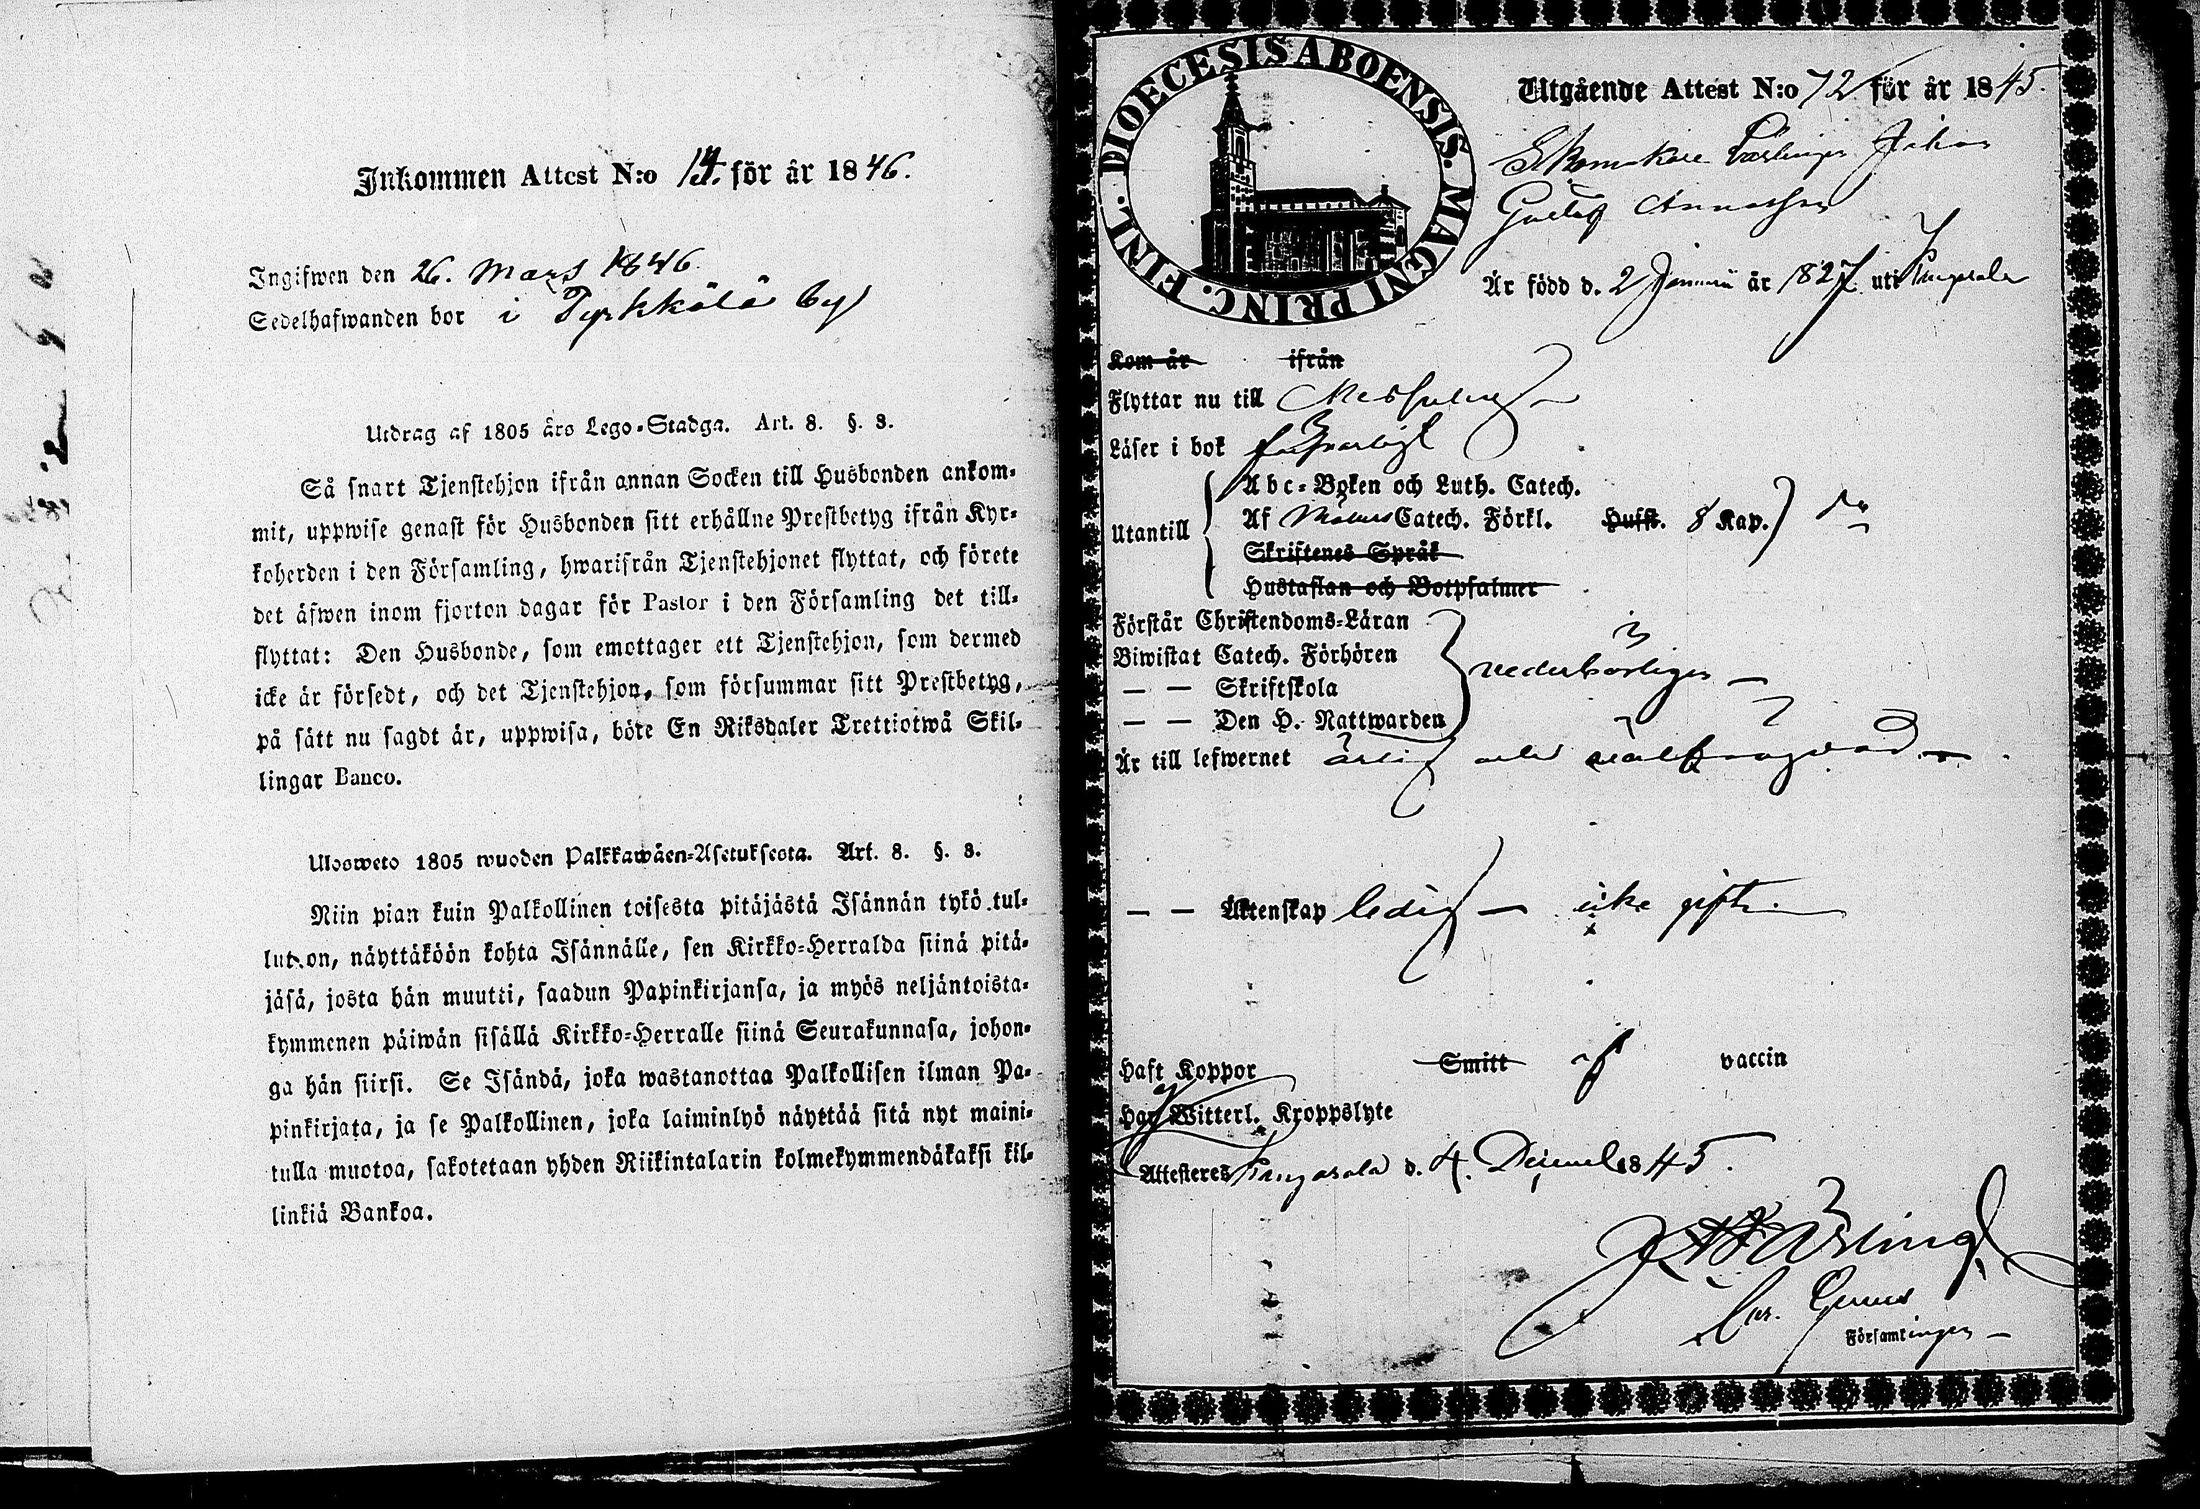 Inkommen Attest N:o 14. för år 1846.
Ingifwen den 26. Mars 1846.
Sedelhafwanden bor i Pyrkkälä by
Utdrag af 1805 års Lego-Stadga. Art. 8. §. 3.
Så snart Tjenstehjon ifrån annan Socken till Husbonden ankom-
mit, uppwise genast för Husbonden sitt erhållne Prestbetyg ifrån Kyr-
koherden i den Församling, hwarifrån Tjenstehjonet flyttat, och förete
det äfwen inom fjorton dagar för Pastor i den Församling det till-
flyttat: Den Husbonde, som emottager ett Tjenstehjon, som dermed
icke är försedt, och det Tjenstehjon, som försummar sitt Prestbetyg,
på sätt nu sagdt är, uppwisa, böte En Riksdaler Trettiotwå Skil-
lingar Banco.
Ulosweto 1805 wuoden Palkkawäen-Asetuksesta. Art. 8. §. 3.
Niin pian kuin Palkollinen toisesta pitäjästä Isännän tykö tul-
lut on, näyttäköön kohta Isännälle, sen Kirkko-Herralda siinä pitä-
jäsä, josta hän muutti, saadun Papinkirjansa, ja myös neljäntoista-
kymmenen päiwän sisällä Kirkko-Herralle siinä Seurakunnasa, johon-
ga hän siirsi. Se Isändä, joka wastanottaa Palkollisen ilman Pa-
pinkirjata, ja se Palkollinen, joka laiminlyö näyttää sitä nyt maini-
tulla muotoa, sakotetaan yhden Riikintalarin kolmekymmendäkaksi kil-
linkiä Bankoa.
DIOECESIS ABOENSIS. MAGNI PRINC. FINL.
Utgående Attest N:o 72 för år 1845.
Skomakare Lärlingen Johan
Gustaf
Är född d. 2 Januarii år 1827 uti Kangasala
Kom år ifrån
Flyttar nu till Messuby
Läser i bok försvarligt
Utantill
Abc-Boken och Luth. Catech.
Af Möllers Catech. Förkl. Hufst. 8 Kap.
Skriftenes Språk
Hustaflan och Botpsalmer
Förstår Christendoms-Läran
Biwistat Catech. Förhören
— — Skriftskola
— — Den H. Nattwarden
vederbörligen
Är till lefwernet ärlig och välfrägdad
— — Äktenskap ledig — icke gift
Haft Koppor Smitt af vaccin
Har Witterl. Kroppslyte
Attesteres Kangasala d. 4. Decemb 1845.
Församlingen